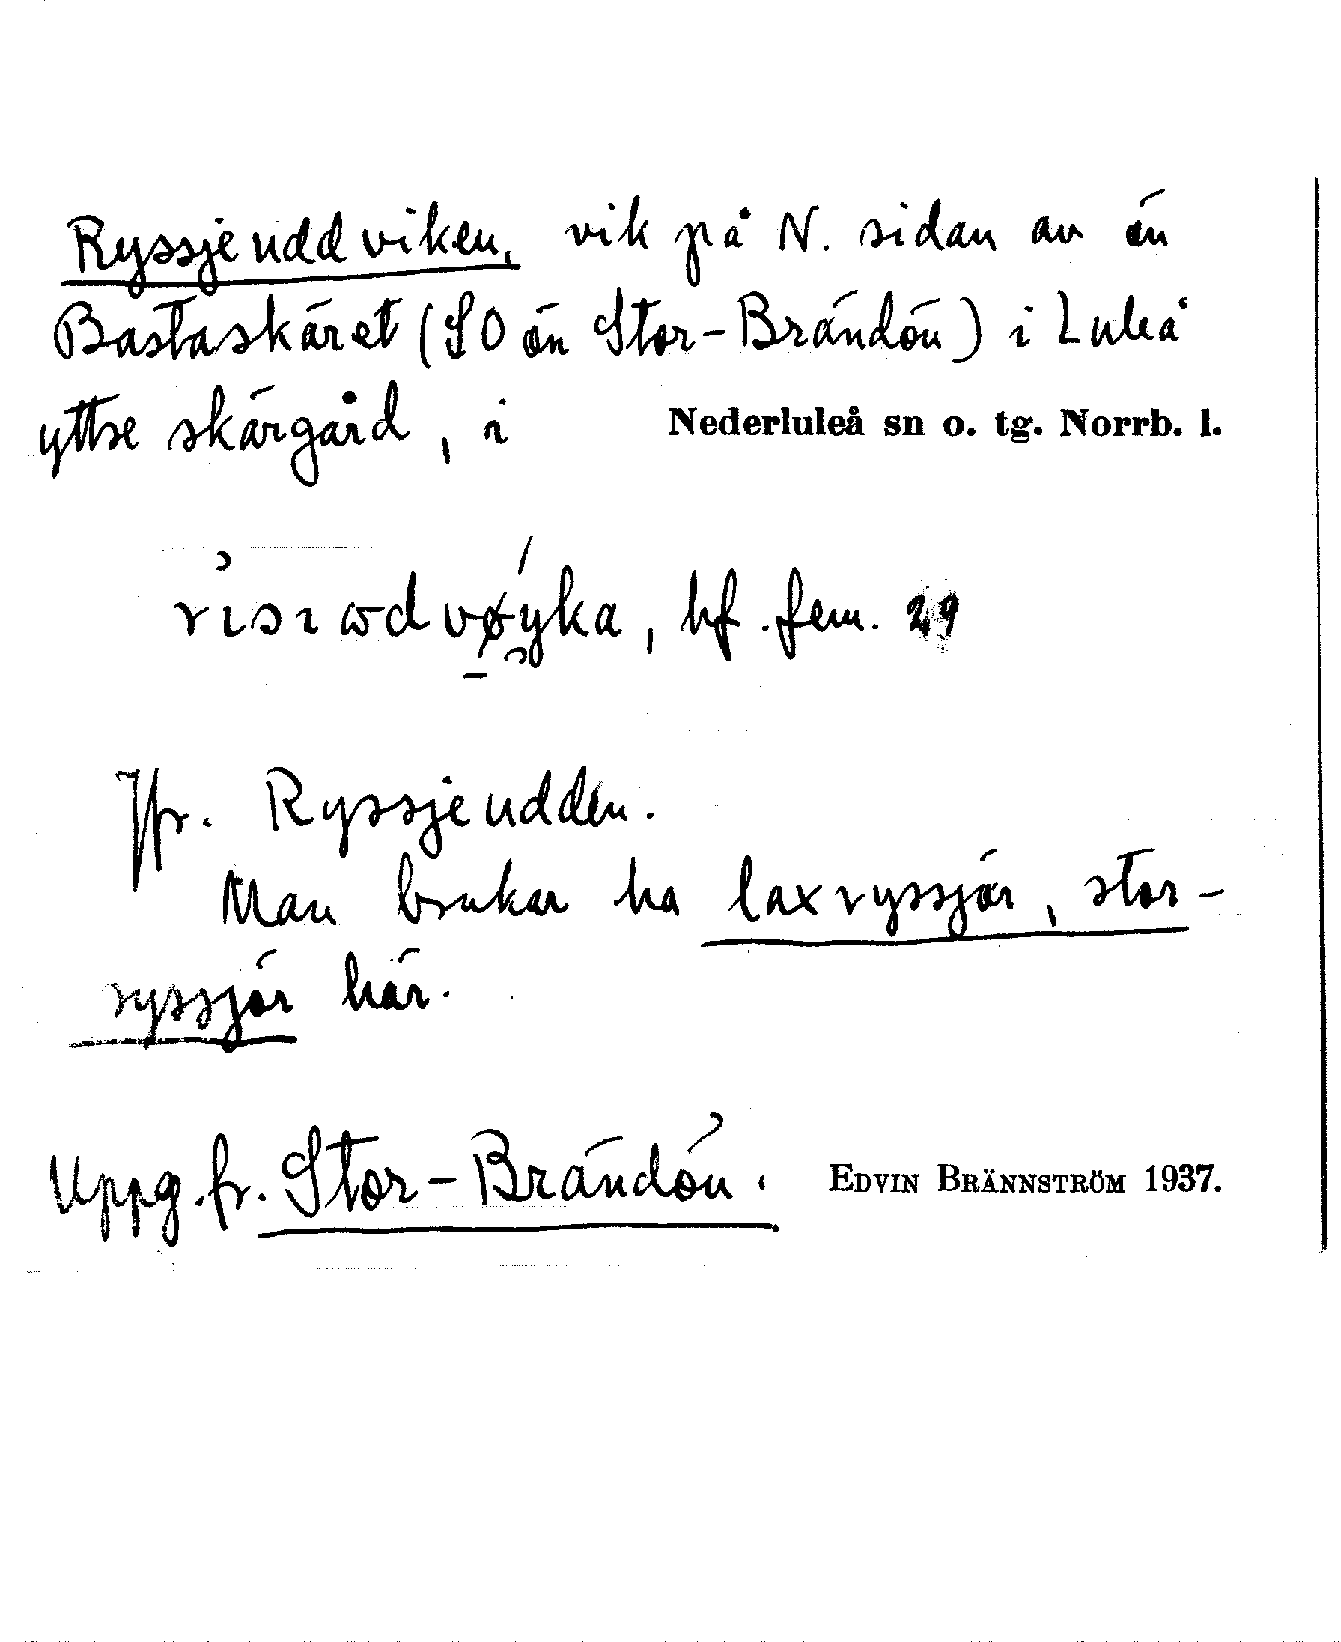 Ryssjeuddviken, vik på N. sidan av ön
Bastaskäret (SO ön Stor-Brändön) i Luleå
yttre skärgård, i Nederluleå sn o. tg. Norrb. l.
bf. fem. 29
Jfr. Ryssjeudden.
Man brukar ha laxryssjör, stor-
ryssjör här.
Uppg. fr. Stor-Brändön. EDVIN BRÄNNSTRÖM 1937.